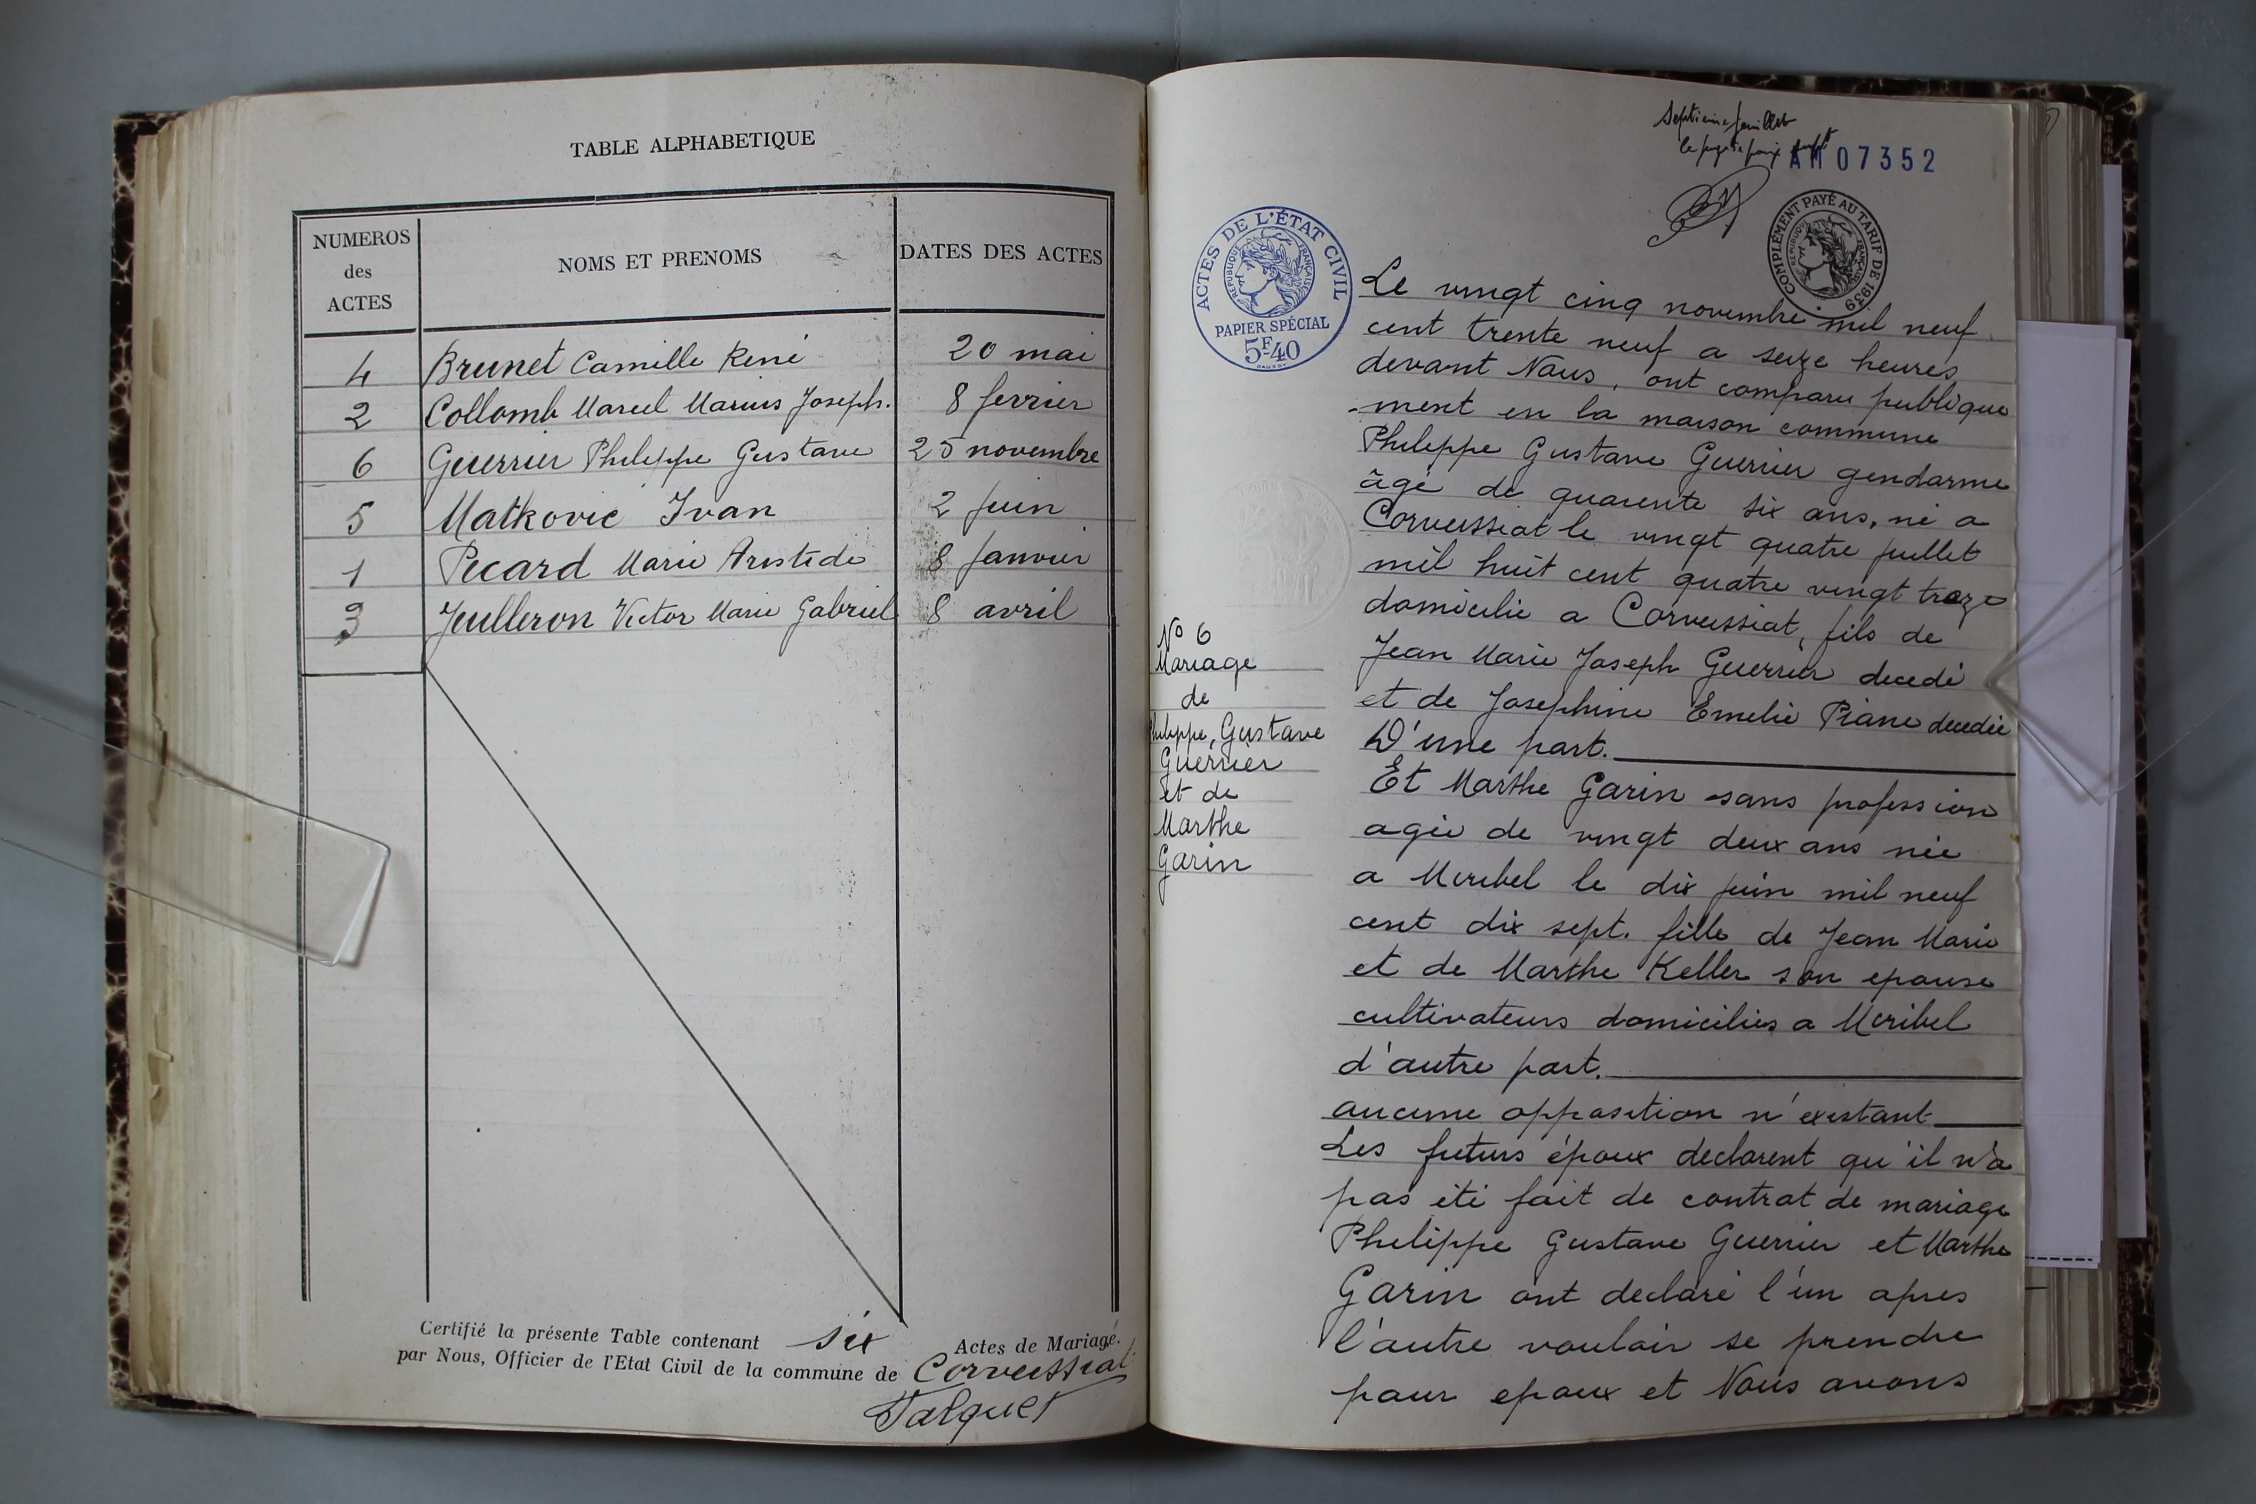 TABLE ALPHABETIQUE
NUMEROS des ACTES
NOMS ET PRENOMS
DATES DES ACTES
4 Brunet Camille René 20 mai
2 Collomb Marcel Marius Joseph. 8 fevrier
6 Guerrier Philippe Gustave 25 novembre
5 Matkovic Ivan 2 juin
1 Pecard Marie Aristide 8 janvier
3 Juilleron Victor Marie Gabriel 8 avril
Certifié la présente Table contenant six Actes de Mariage.
par Nous, Officier de l'Etat Civil de la commune de Corveissiat
septieme feuillet
le juge de paix
AM 07352
ACTES DE L'ÉTAT CIVIL
RÉPUBLIQUE FRANÇAISE
PAPIER SPÉCIAL
5F40
COMPLÉMENT PAYÉ AU TARIF DE 1939
RÉPUBLIQUE FRANÇAISE
N° 6
Mariage
de
Philippe, Gustave
Guerrier
et de
Marthe
Garin
Le vingt cinq novembre mil neuf
cent trente neuf a seize heures
devant Nous, ont comparu publique
-ment en la maison commune
Philippe Gustave Guerrier gendarme
âgé de quarente six ans, né a
Corveissiat le vingt quatre juillet
mil huit cent quatre vingt treize
domicilié a Corveissiat, fils de
Jean Marie Joseph Guerrier decedé
et de Josephine Emelie Piane decedée
D'une part.
Et Marthe Garin sans profession
agée de vingt deux ans née
a Meribel le dix juin mil neuf
cent dix sept. fille de Jean Marie
et de Marthe Keller son epouse
cultivateurs domiciliés a Meribel
d'autre part.
aucune opposition n'existant
Les futurs époux declarent qu'il n'a
pas été fait de contrat de mariage
Philippe Gustave Guerrier et Marthe
Garin ont declaré l'un apres
l'autre vouloir se prendre
pour epoux et Nous avons